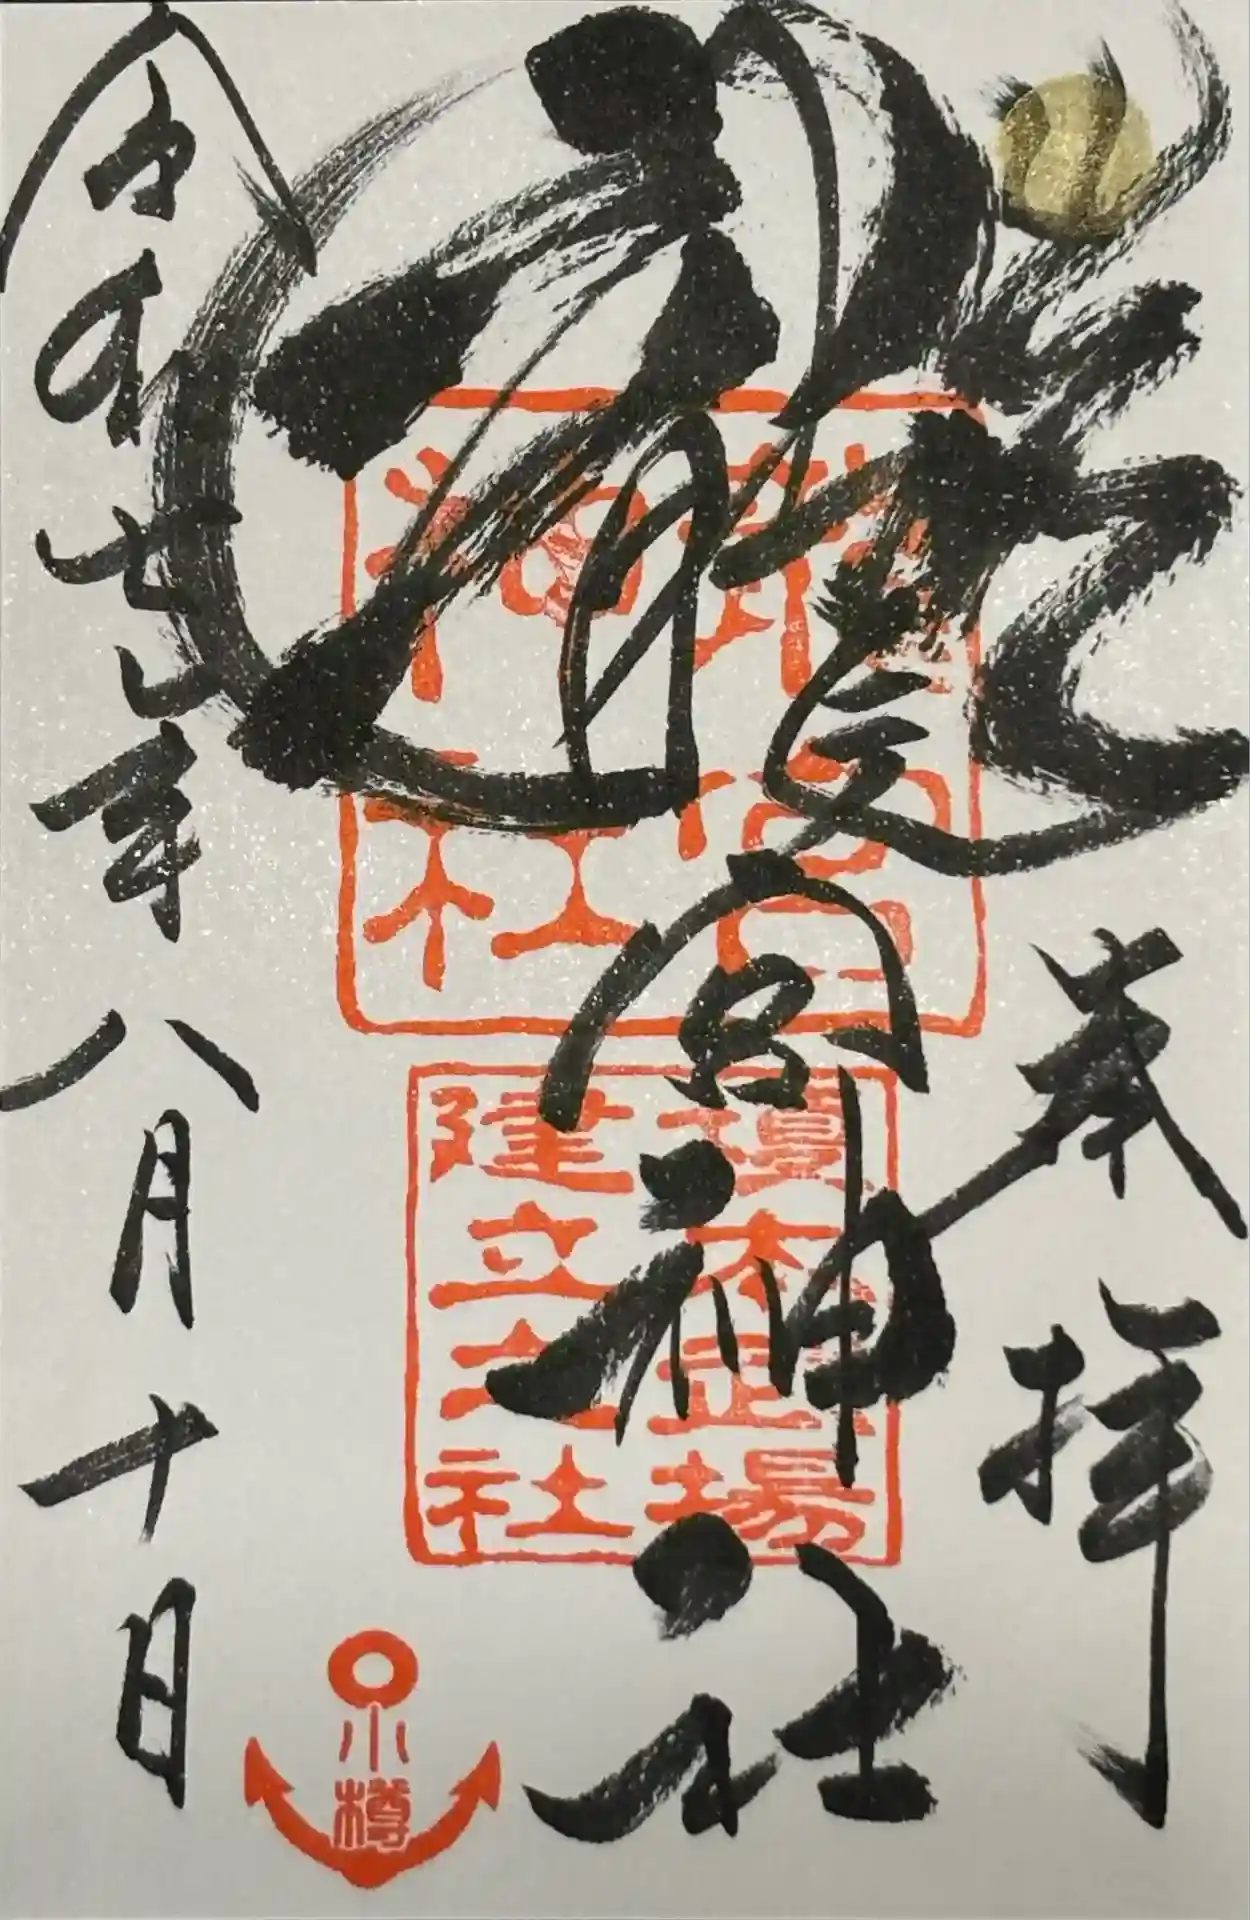 奉拝
龍宮神社
龍宮
神社
榎本武揚
建立之社
小樽
令和七年八月十日